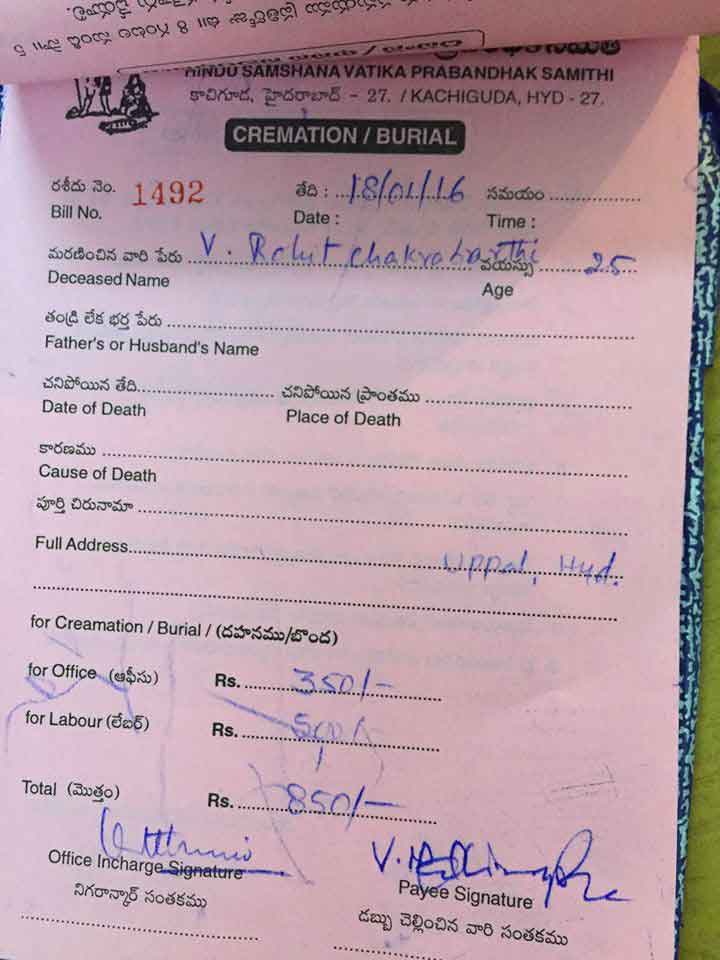 HINDU SAMSHANA VATIKA PRABANDHAK SAMITHI
కాచిగూడ, హైదరాబాద్ - 27. / KACHIGUDA, HYD - 27.
CREMATION / BURIAL
రశీదు నెం. 1492 తేది : 18/01/16 సమయం
Bill No. Date : Time :
మరణించిన వారి పేరు V. Rohit chakrabarthi వయస్సు 25
Deceased Name Age
తండ్రి లేక భర్త పేరు
Father's or Husband's Name
చనిపోయిన తేది చనిపోయిన ప్రాంతము
Date of Death Place of Death
కారణము
Cause of Death
పూర్తి చిరునామా
Full Address Uppal, Hyd.
for Creamation / Burial / (దహనము/బొంద)
for Office (ఆఫీసు) Rs. 350/-
for Labour (లేబర్) Rs. 500/-
Total (మొత్తం) Rs. 850/-
Office Incharge Signature Payee Signature
నిగరాన్కార్ సంతకము డబ్బు చెల్లించిన వారి సంతకము